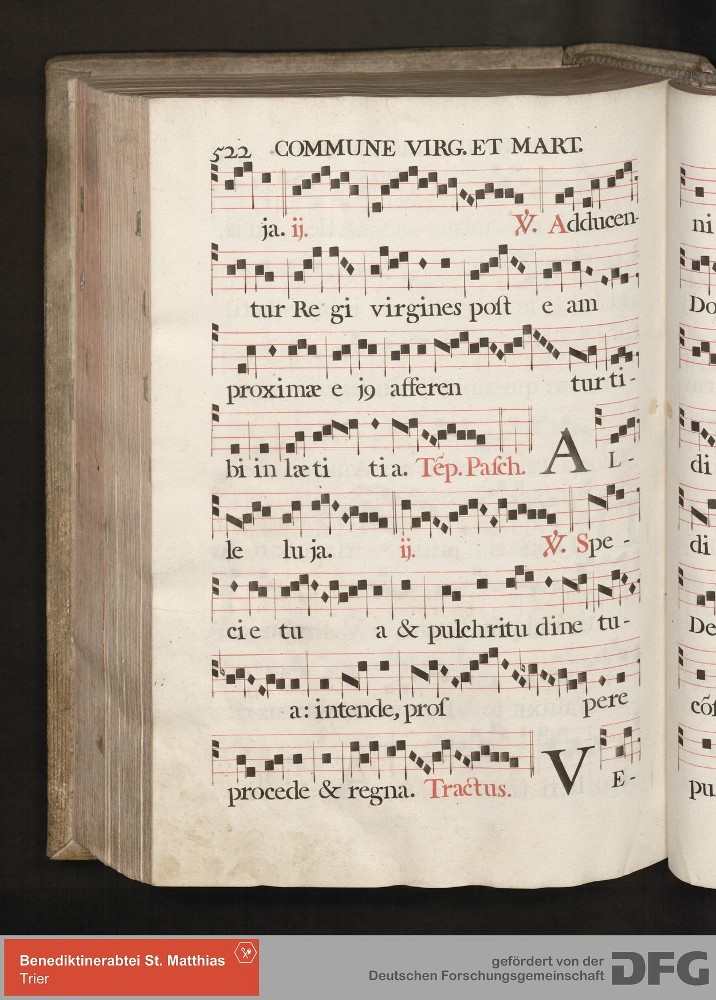 522 COMMUNE VIRG. ET MART.
ja. ij. ℣. Adducen-
tur Re gi virgines poſt e am
proximæ e j9 afferen tur ti-
bi in læ ti ti a. Te͂p. Paſch. A L-
le lu ja. ij. ℣. Spe-
ci e tu a & pulchritu dine tu-
a: intende, proſ pere
procede & regna. Tractus. V E-
ni
Do
pu
di
di
De
cõſ
pu
Benediktinerabtei St. Matthias
Trier
gefördert von der
Deutschen Forschungsgemeinschaft DFG